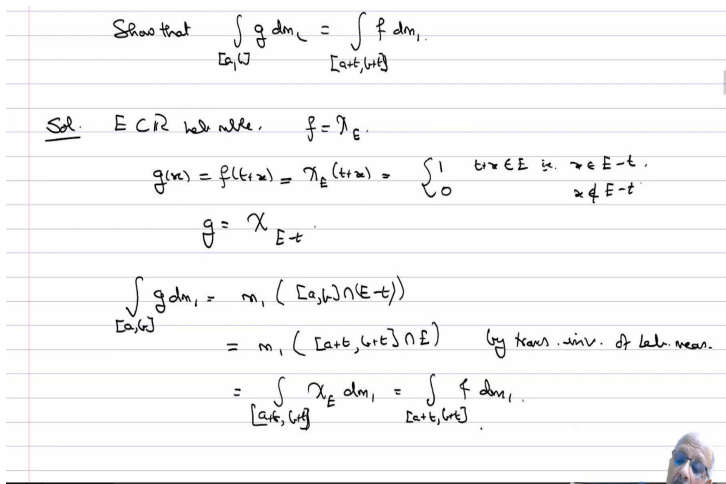 Show that ∫_{[a,b]} g dm₁ = ∫_{[a+t,b+t]} f dm₁.
Sol. E ⊂ ℝ Leb. mble. f = χ_E.
g(x) = f(t+x) = χ_E(t+x) = { 1 t+x ∈ E i.e. x ∈ E-t.
0 x ∉ E-t.
g = χ_{E-t}.
∫_{[a,b]} g dm₁ = m₁([a,b]∩(E-t))
= m₁([a+t,b+t]∩E) by trans. inv. of Leb. meas.
= ∫_{[a+t,b+t]} χ_E dm₁ = ∫_{[a+t,b+t]} f dm₁.